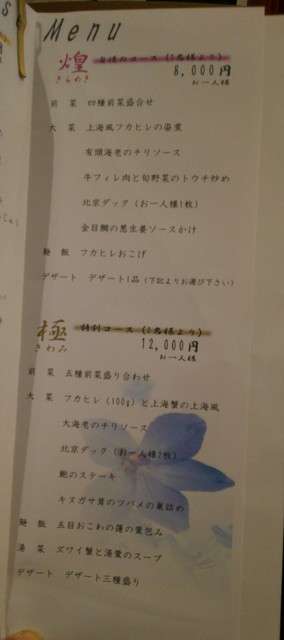 Menu
煌 自慢のコース (2名様より)
きらめき 8,000円
お一人様
前 菜 四種前菜盛合せ
大 菜 上海風フカヒレの姿煮
有頭海老のチリソース
牛フィレ肉と旬野菜のトウチ炒め
北京ダック (お一人様1枚)
金目鯛の葱生姜ソースかけ
麺 飯 フカヒレおこげ
デザート デザート1品 (下記よりお選び下さい)
極 特別コース (2名様より)
きわみ 12,000円
お一人様
前 菜 五種前菜盛り合わせ
大 菜 フカヒレ (100g) と上海蟹の上海風
大海老のチリソース
北京ダック (お一人様2枚)
鮑のステーキ
キヌガサ茸のツバメの巣詰め
麺 飯 五目おこわの蓮の葉包み
湯 菜 ズワイ蟹と湯葉のスープ
デザート デザート三種盛り